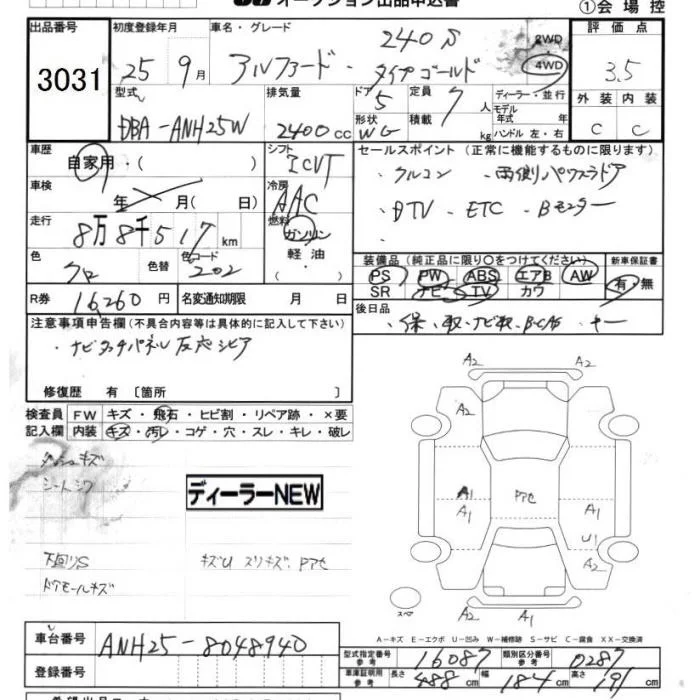 オークション出品申込書
①会場控
出品番号 初度登録年月 車名・グレード 評価点
3031 25年9月 アルファード・240S タイプゴールド 2WD 4WD 3.5
型式 排気量 ドア 定員 ディーラー・並行 外装 内装
DBA-ANH25W 2400cc 5 7人 モデル年式 年式
形状 WG 積載 kg ハンドル 左・右 C C
車歴 自家用・( ) シフト ICVT セールスポイント(正常に機能するものに限ります)
車検 年 月( 日) 冷房 AAC ・クルコン ・両側パワスラドア
・DTV ・ETC ・Bモニター
走行 8万8千517km 燃料 ガソリン・軽油・
色 クロ 色替 色コード 202
装備品(純正品に限り○をつけてください) 新車保証書
PS PW ABS エアB AW 有・無
SR ナビ TV カワ
R券 16,260円 名変通知期限 月 日
後日品 ・保・取・ナビ取・B-CAS・キー
注意事項申告欄(不具合内容等は具体的に記入して下さい)
・ナビタッチパネル反応シビア
修復歴 有〔箇所 〕
検査員記入欄 FW キズ・飛石・ヒビ割・リペア跡・×要
内装 キズ・汚レ・コゲ・穴・スレ・キレ・破レ
ダッシュキズ
シートシワ
ディーラーNEW
下回りS キズU スリキズ、Pアセ
ドアモールキズ
A2 A2
A2 A2
A1 Pアセ A1
A1 A1
U1
A2
A2 A1
スペア
A－キズ E－エクボ U－凹み W－補修跡 S－サビ C－腐食 XX－交換済
車台番号 ANH25-8048940
型式指定番号 参考 16087 類別区分番号 参考 0287
登録番号
車庫証明用 参考 長さ 488cm 幅 184cm 高さ 191cm